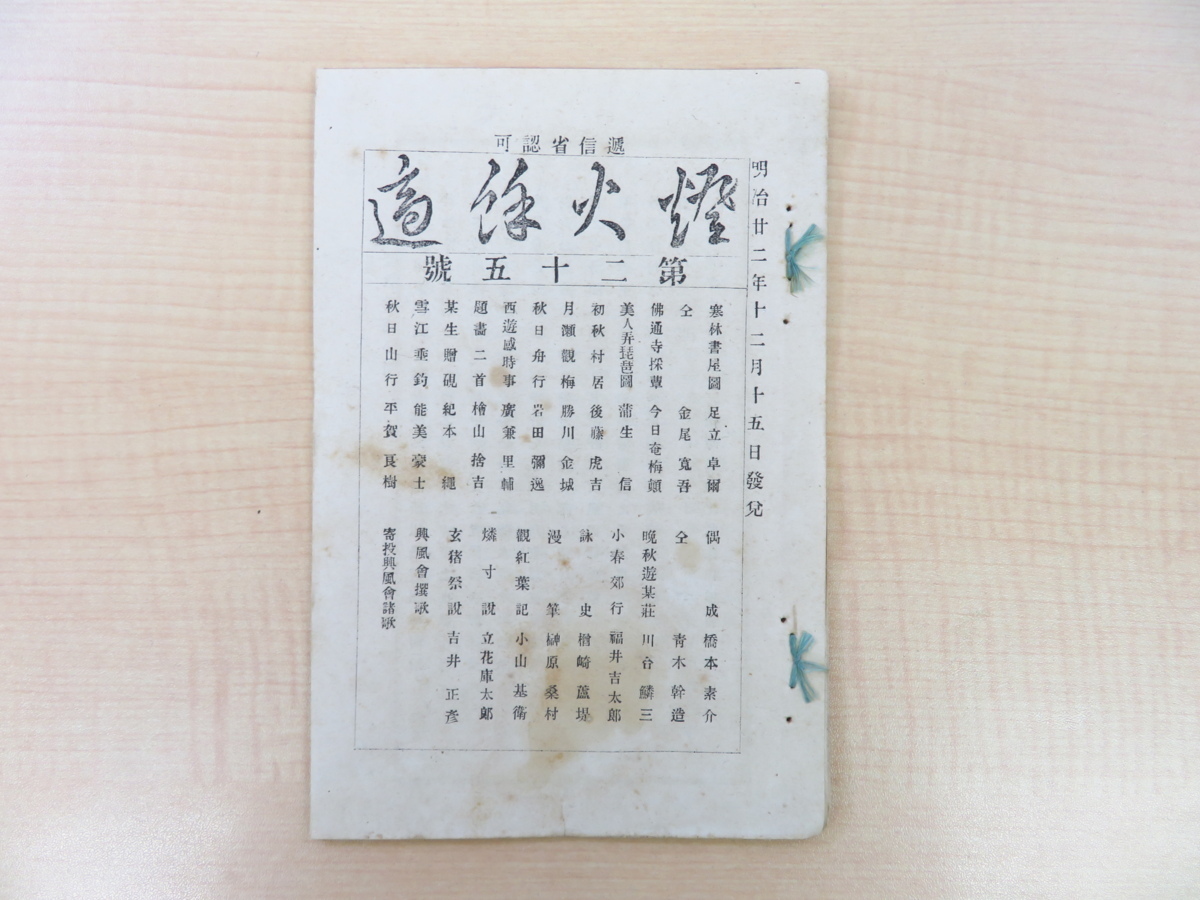 明治廿二年十二月十五日發兌
遞信省認可
燈火餘適
第二十五號
寒林書屋圖 足立卓爾
仝 金尾寬吾
佛通寺採蕈 今日庵梅顛
美人弄琵琶圖 蒲生信
初秋村居 後藤虎吉
月瀨觀梅 勝川金城
秋日舟行 岩田彌逸
西遊感時事 廣兼里輔
題畵二首 檜山捨吉
某生贈硯 紀本繩
雪江垂釣 能美豪士
秋日山行 平賀良樹
偶成 橋本素介
仝 青木幹造
晩秋遊某莊 川合鱗三
小春郊行 福井吉太郎
詠史 楢崎蘆堤
漫筆 榊原桑村
觀紅葉記 小山基衛
燐寸說 立花庫太郎
玄猪祭說 吉井正彥
興風會撰歌
寄投興風會諸歌